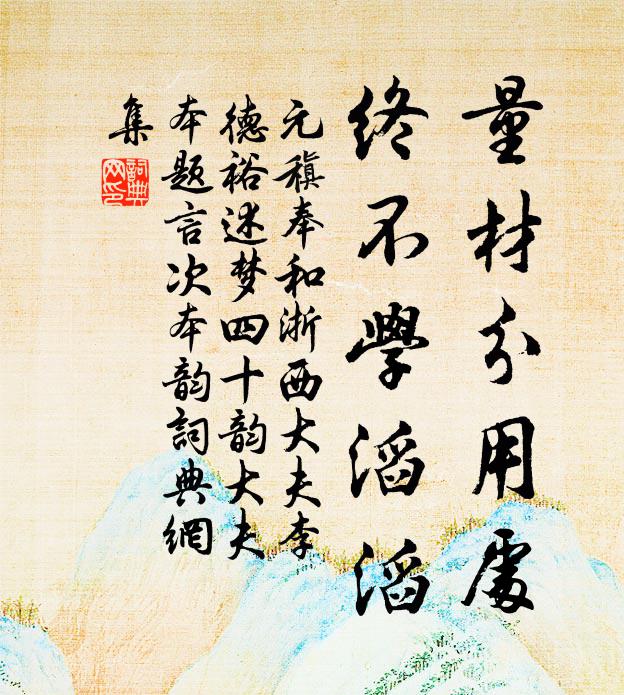 量材分用處
終不學滔滔
元稹奉和浙西大夫李
德裕述梦四十韵大夫
本题言次本韵詞典網
集
詞典网印